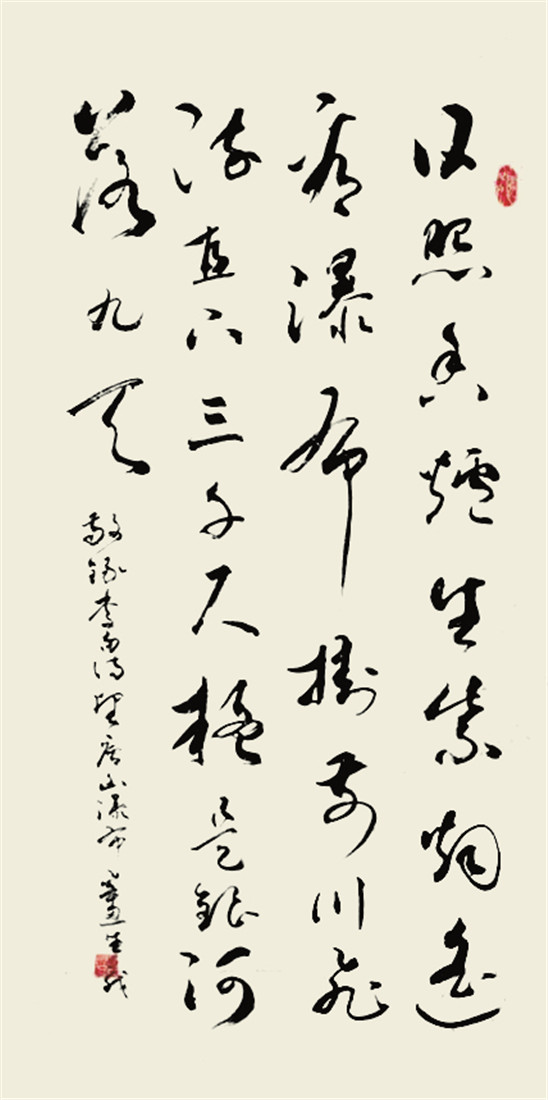 日照香爐生紫烟遙
看瀑布掛前川飛
流直下三千尺疑是銀河
落九天
敬錄李白詩望廬山瀑布